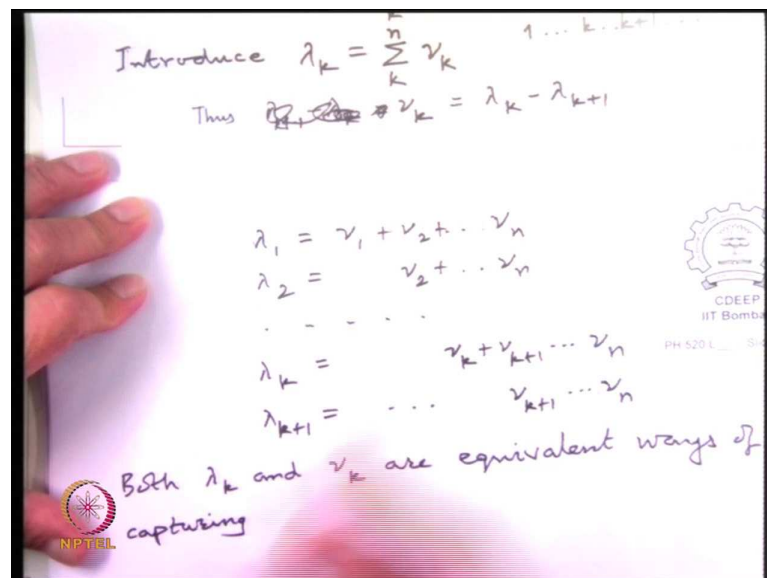 1 ... k .. k+1 ...
Introduce λ_k = Σ_k^n ν_k
Thus ν_k = λ_k - λ_{k+1}
λ_1 = ν_1 + ν_2 + . . ν_n
λ_2 = ν_2 + . . ν_n
. - - . .
λ_k = ν_k + ν_{k+1} ... ν_n
λ_{k+1} = ... ν_{k+1} ... ν_n
Both λ_k and ν_k are equivalent ways of
capturing
CDEEP
IIT Bomba
PH 520 L
NPTEL